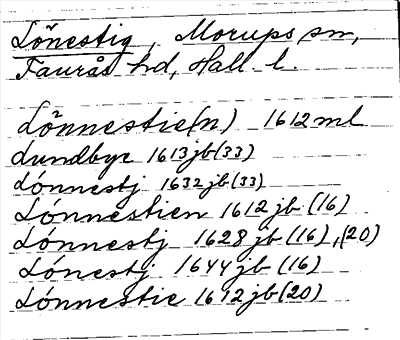 Lönestig, Morups sn,
Faurås hd, Hall. l.
Lönnestie(n) 1612 ml
Lundbyr 1613 jb (33)
Lónnestj 1632 jb (33)
Lónnestien 1612 jb (16)
Lónnestj 1628 jb (16), (20)
Lónestj 1644 jb (16)
Lónnestie 1612 jb (20)